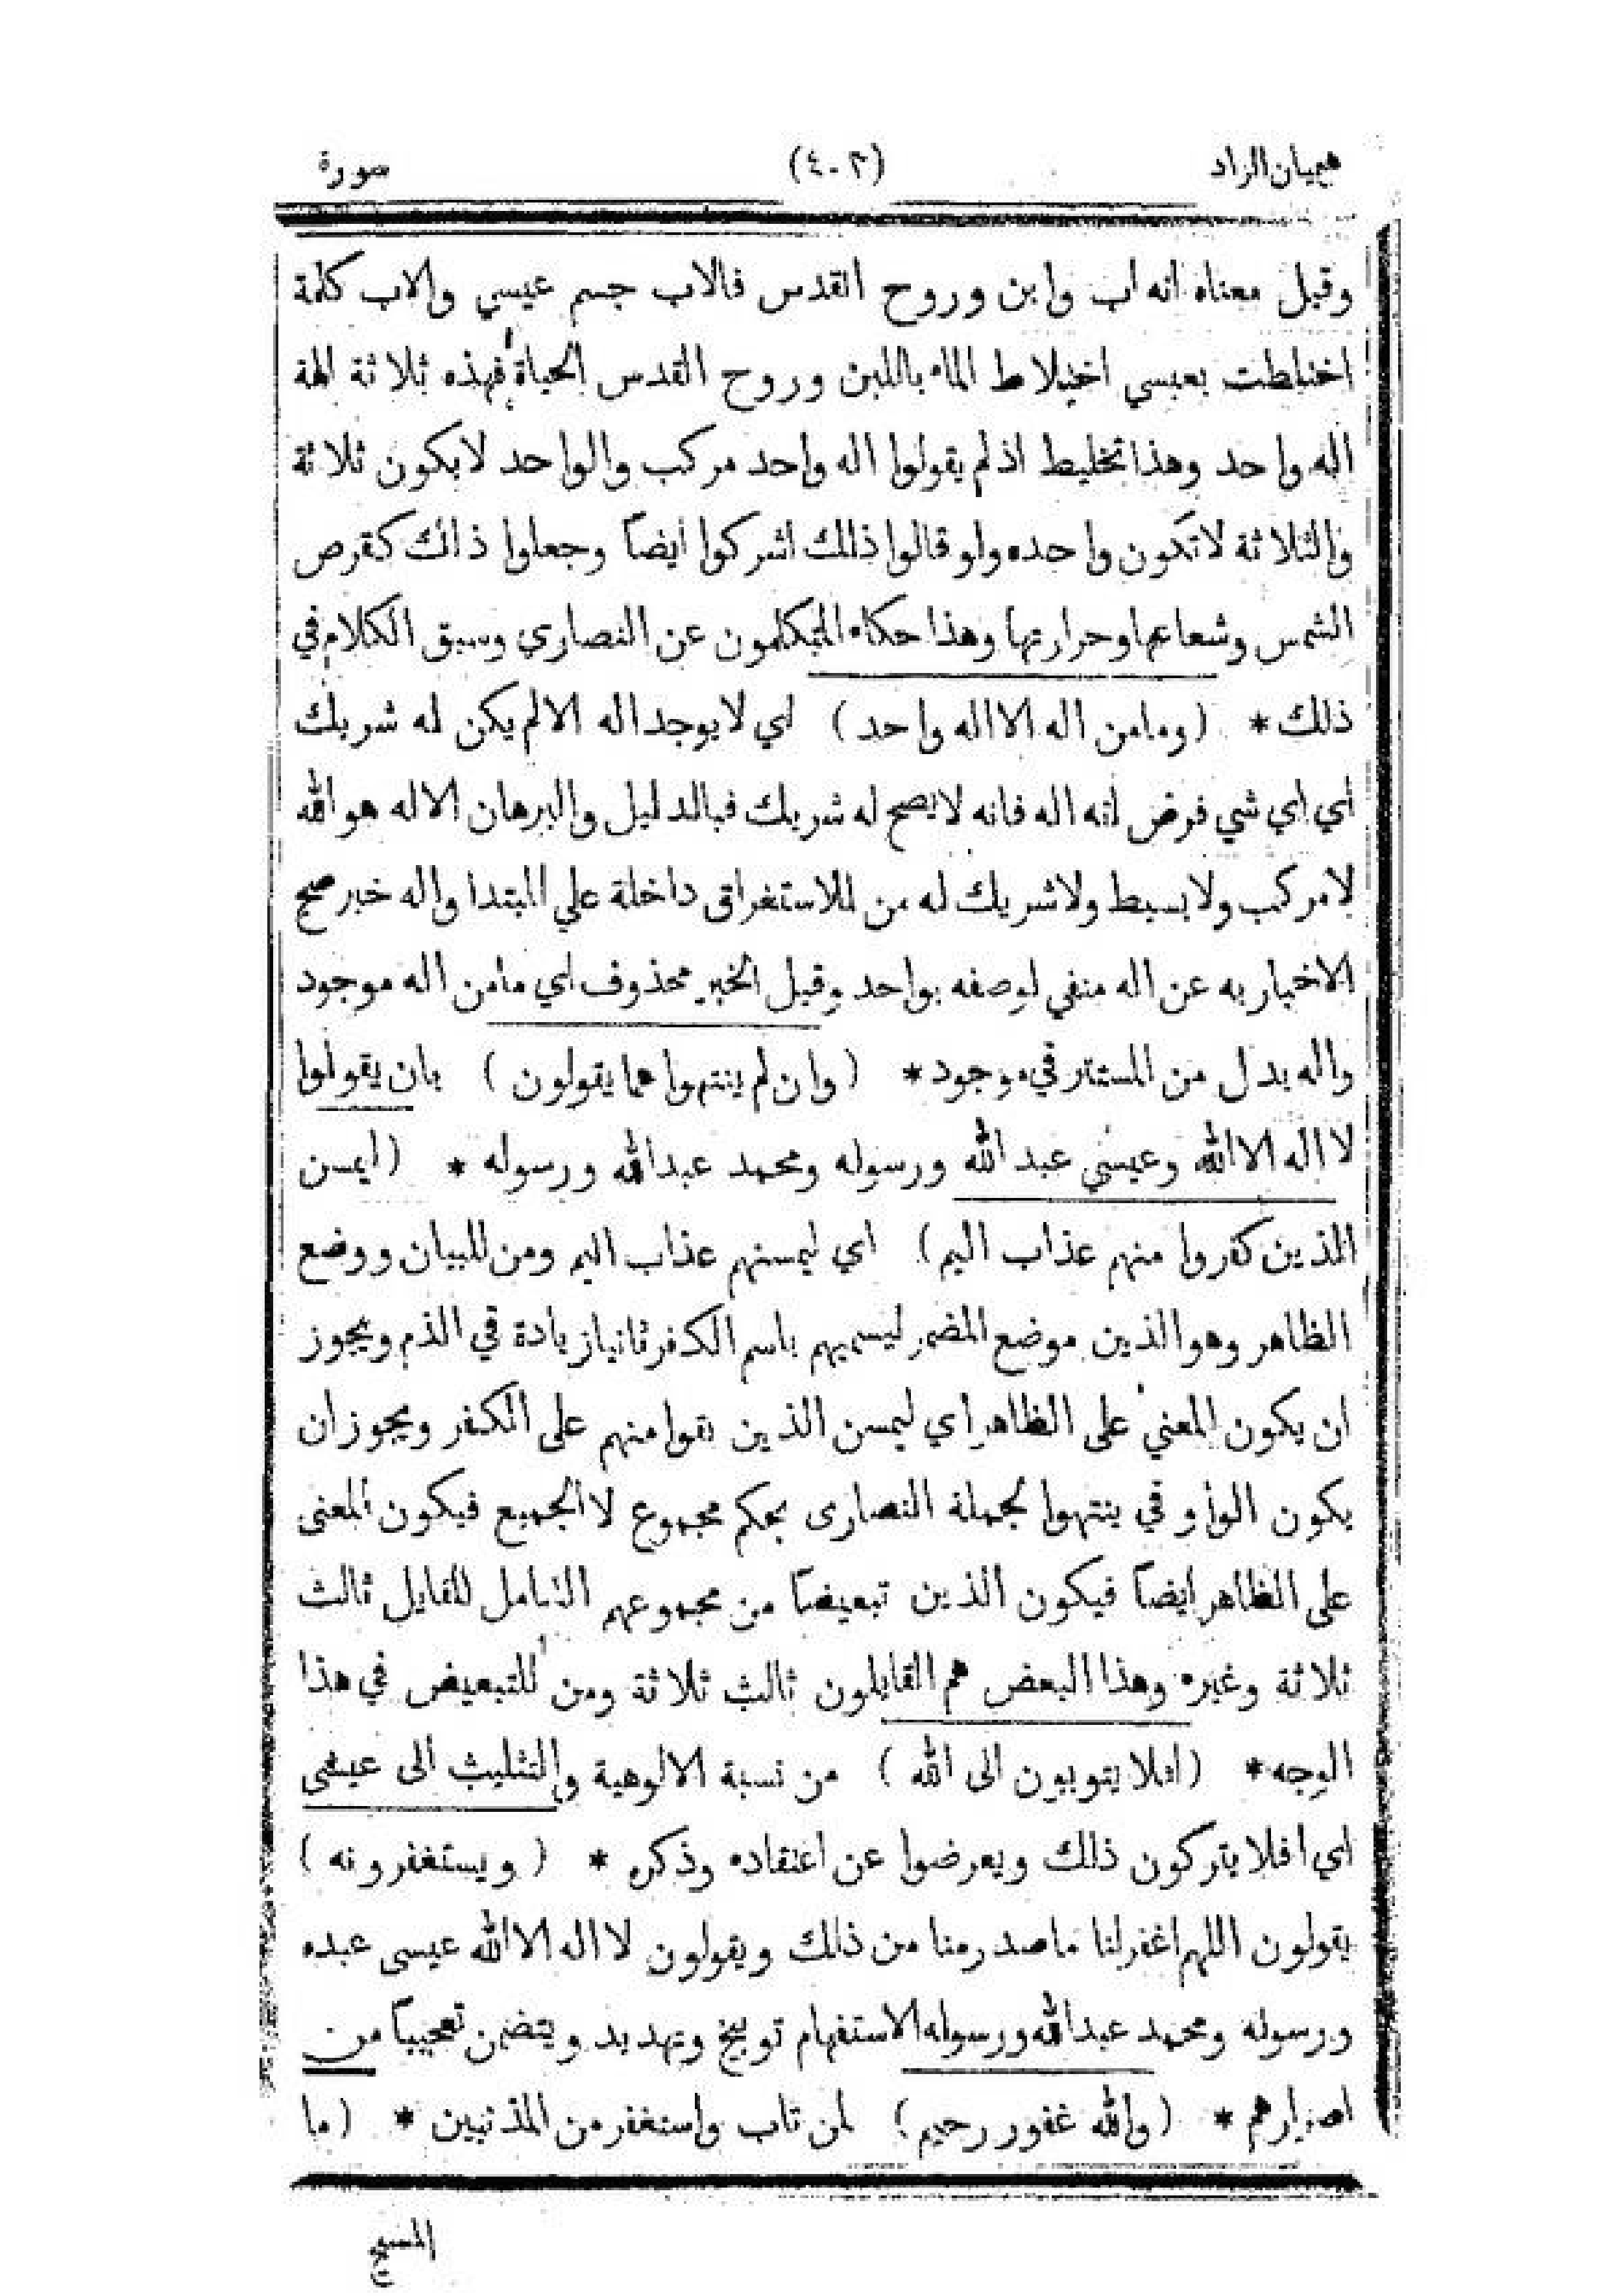 هيميان الزاد (٤٠٣) سورة
وقيل معناه انه اب وابن وروح القدس فالاب جسم عيسي والاب كلمة
اختلطت بعيسي اختلاط الماء باللبن وروح القدس الحياة فهذه ثلاثة الهة
اله واحد وهذا تخليط اذ لم يقولوا اله واحد مركب والواحد لا يكون ثلاثة
والثلاثة لا تكون واحده ولو قالوا ذلك اشركوا ايضاً وجعلوا ذلك كقرص
الشمس وشعاعها وحرارتها وهذا حكاه المتكلمون عن النصاري وسبق الكلام في
ذلك * (وما من اله الا اله واحد) اي لا يوجد اله الا لم يكن له شريك
اي اي شي فرض انه اله فانه لا يصح له شريك فبالدليل والبرهان الاله هو الله
لا مركب ولا بسيط ولا شريك له من للاستغراق داخلة علي المبتدا واله خبر صح
الاخبار به عن اله منفي لوصفه بواحد وقيل الخبر محذوف اي ما من اله موجود
واله بدل من المستتر في موجود * (وان لم ينتهوا عما يقولون) بان يقولوا
لا اله الا الله وعيسي عبد الله ورسوله ومحمد عبد الله ورسوله * (ليمسن
الذين كفروا منهم عذاب اليم) اي ليمسنهم عذاب اليم ومن للبيان ووضع
الظاهر وهو الذين موضع المضمر ليسميهم باسم الكفر ثانيا زيادة في الذم ويجوز
ان يكون المعني على الظاهر اي ليمسن الذين بقوا منهم على الكفر ويجوز ان
يكون الواو في ينتهوا لجملة النصارى بحكم مجموع لا الجميع فيكون المعنى
على الظاهر ايضاً فيكون الذين تبعيضاً من مجموعهم الشامل للقايل ثالث
ثلاثة وغيره وهذا البعض هم القايلون ثالث ثلاثة ومن للتبعيض في هذا
الوجه * (افلا يتوبون الى الله) من نسبة الالوهية والتثليث الى عيسى
اي افلا يتركون ذلك ويعرضوا عن اعتقاده وذكره * (ويستغفرونه)
يقولون اللهم اغفر لنا ما صدر منا من ذلك ويقولون لا اله الا الله عيسى عبده
ورسوله ومحمد عبد الله ورسوله الاستفهام توبيخ وتهديد ويتضمن تعجيباً من
اصرارهم * (والله غفور رحيم) لمن تاب واستغفر من المذنبين * (ما
المسيح